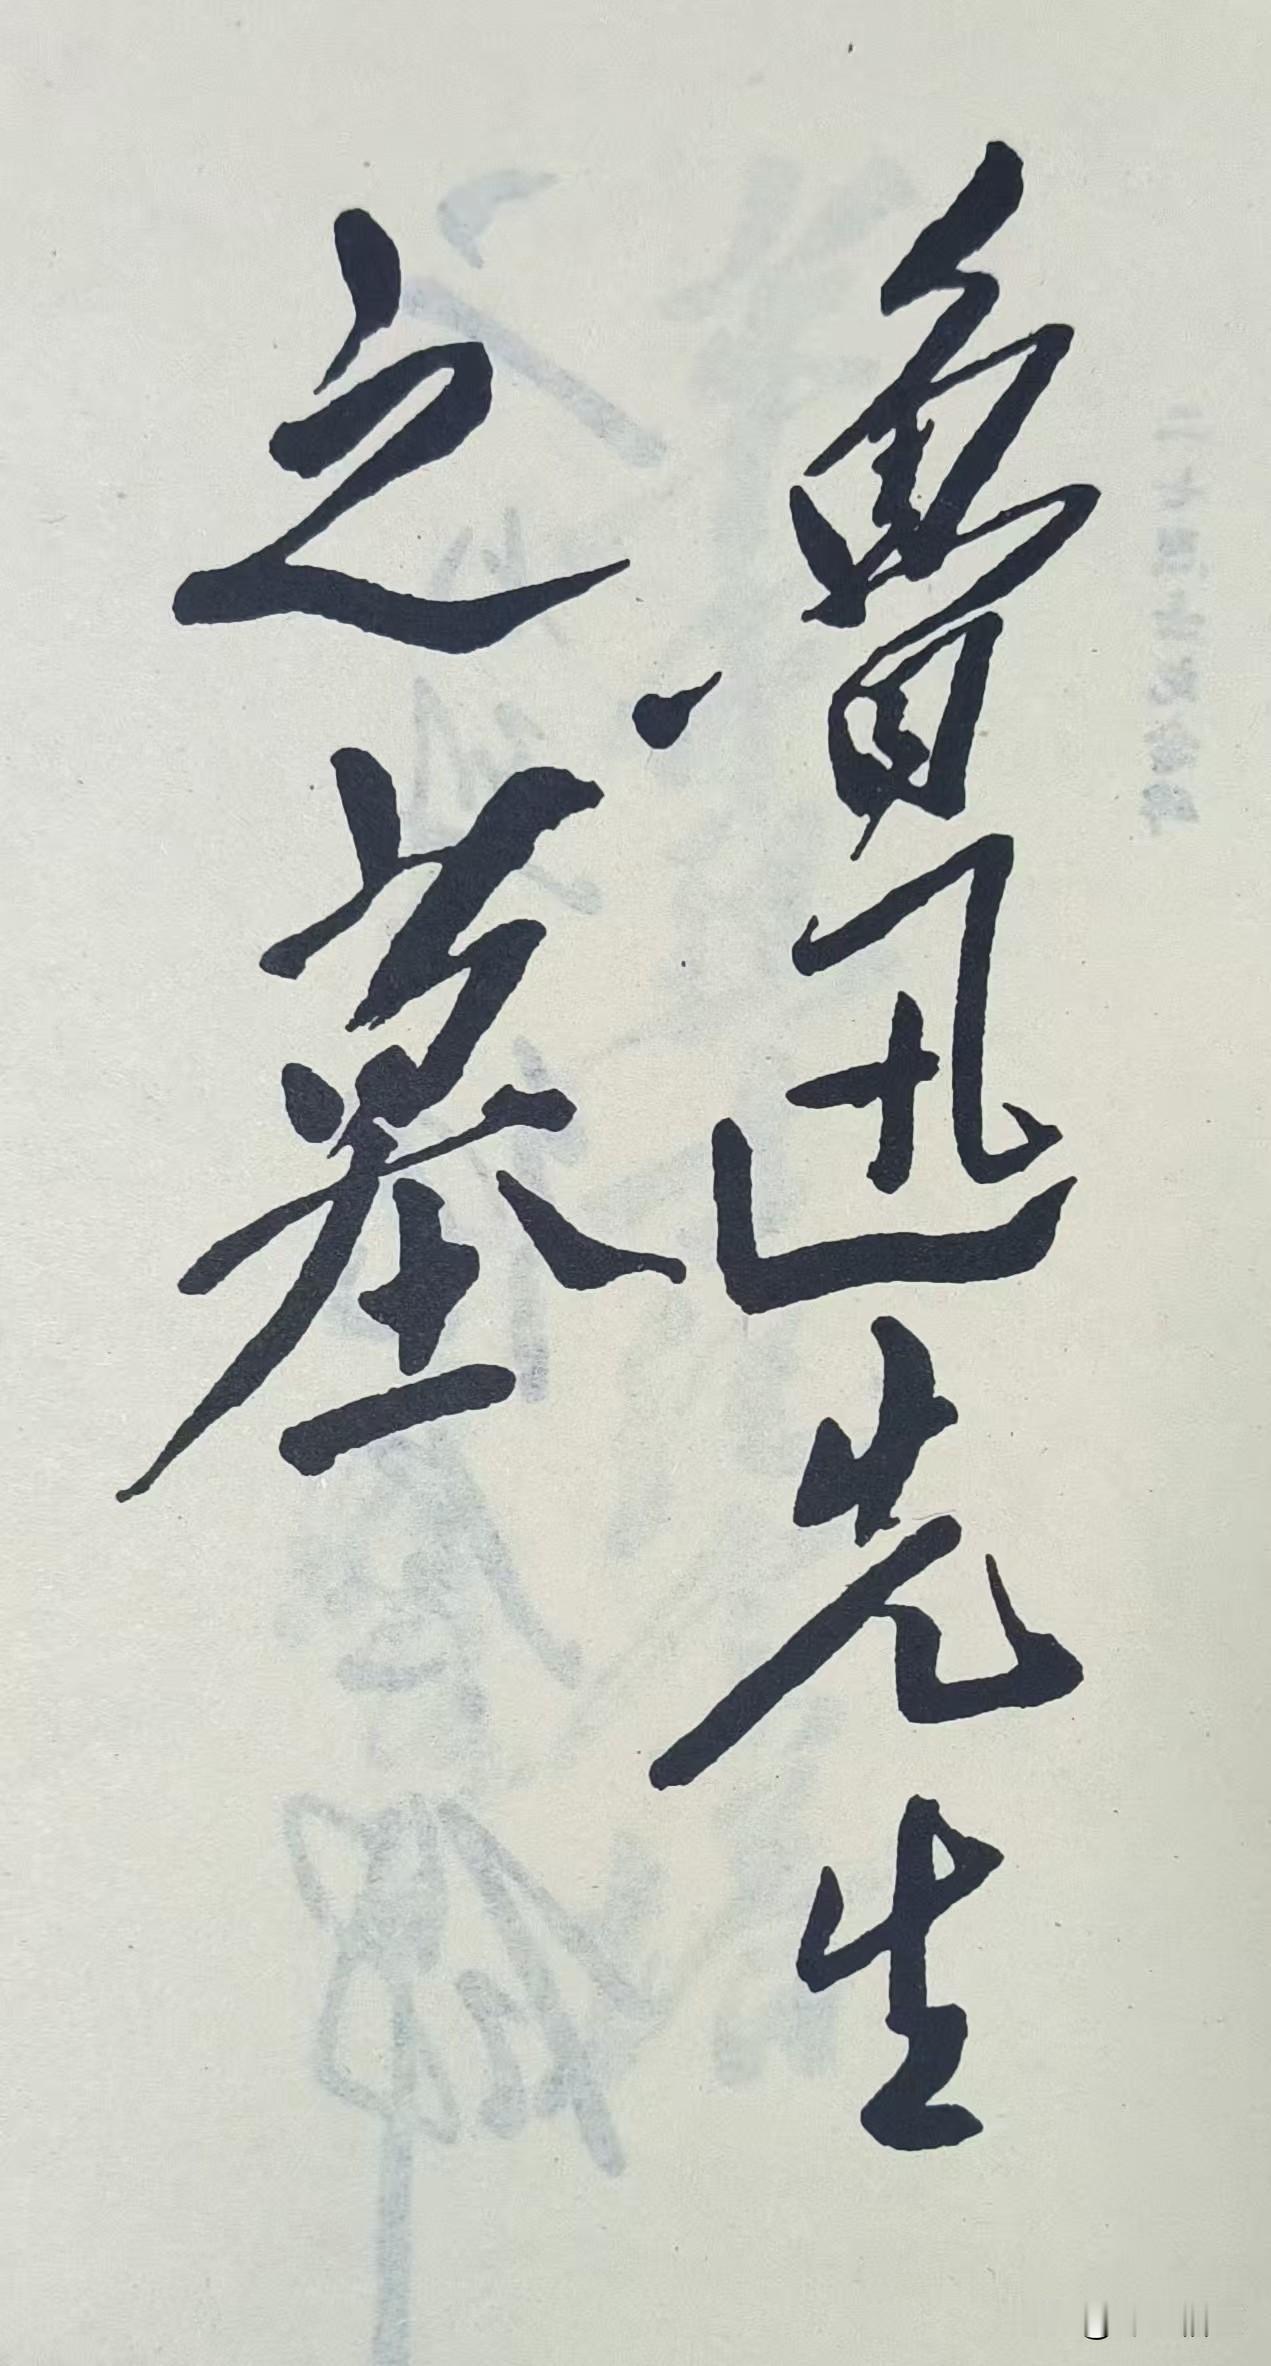 魯迅先生
之墓